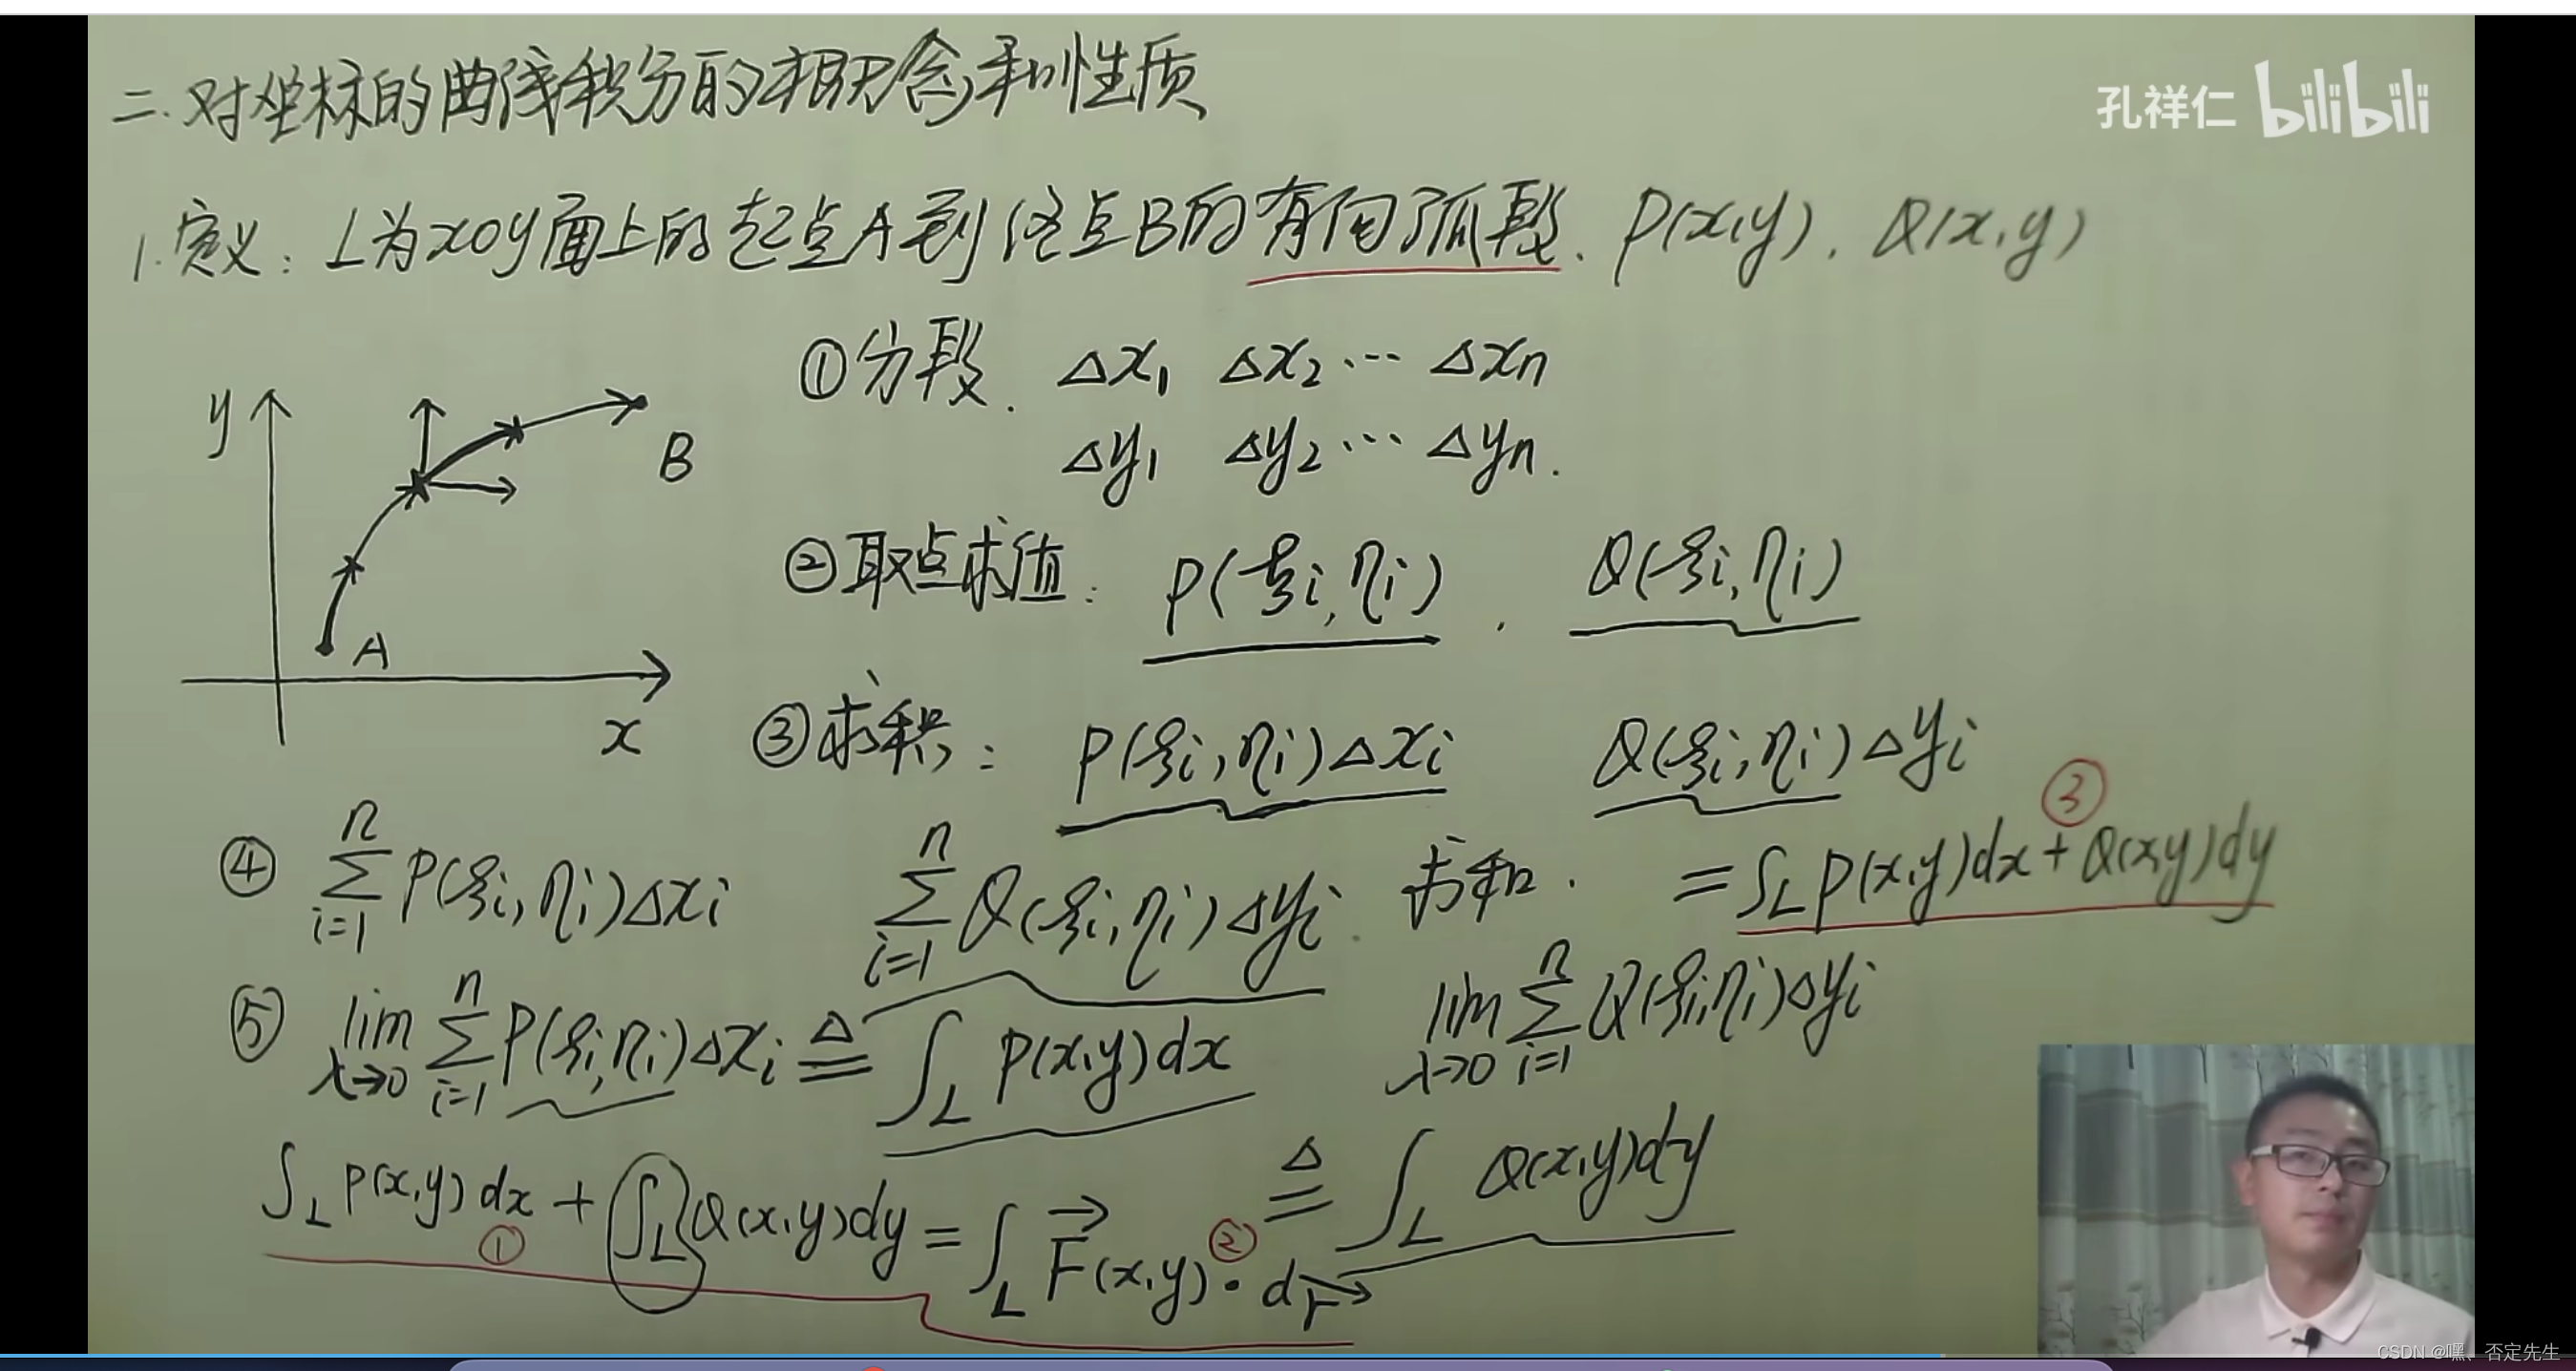 二.对坐标的曲线积分的概念和性质
孔祥仁 bilibili
1.定义: L为xoy面上的起点A到终点B的有向弧段. P(x,y), Q(x,y)
①分段. Δx₁ Δx₂ ⋯ Δxn
Δy₁ Δy₂ ⋯ Δyn.
y
B
A
x
②取点求值: P(ξi,ηi). Q(ξi,ηi)
③求积: P(ξi,ηi)Δxi Q(ξi,ηi)Δyi
④ ∑ⁿᵢ₌₁ P(ξi,ηi)Δxi ∑ⁿᵢ₌₁ Q(ξi,ηi)Δyi. 求和. = ∫L P(x,y)dx + Q(x,y)dy ③
⑤ lim λ→0 ∑ⁿᵢ₌₁ P(ξi,ηi)Δxi ≜ ∫L P(x,y)dx lim λ→0 ∑ⁿᵢ₌₁ Q(ξi,ηi)Δyi
≜ ∫L Q(x,y)dy
∫L P(x,y)dx + ∫L Q(x,y)dy = ∫L F⃗(x,y)·dr⃗ ① ②
CSDN @嘿、否定先生